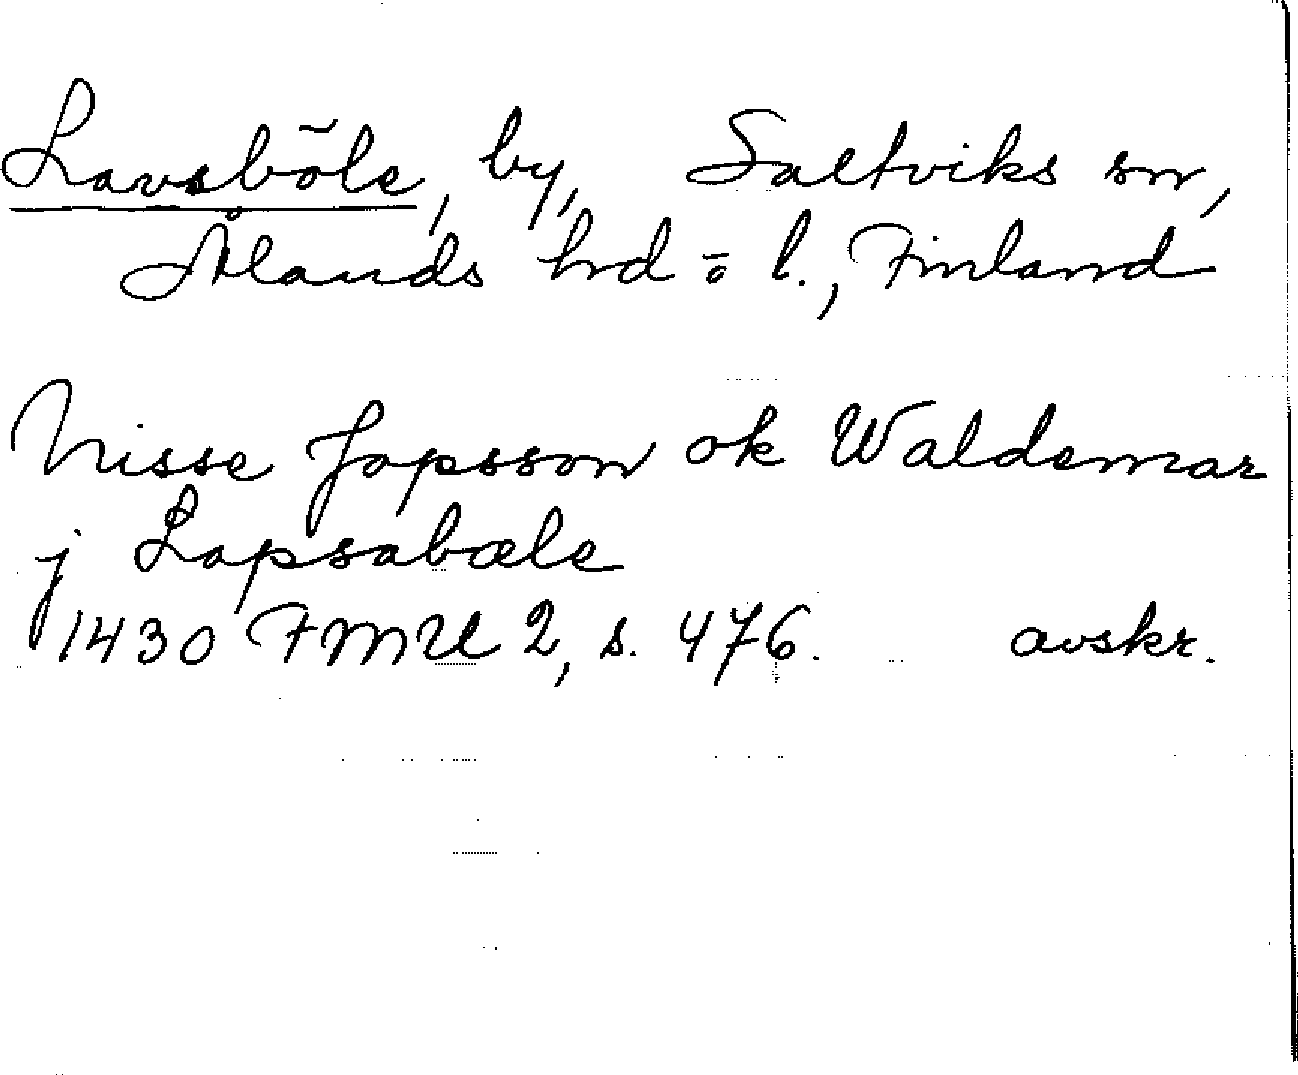 Lavsböle, by, Saltviks sn,
Ålands hrd o l., Finland
Nisse Jopsson ok Waldemar
j Lapsabøle
1430 FMU 2, s. 476. avskr.